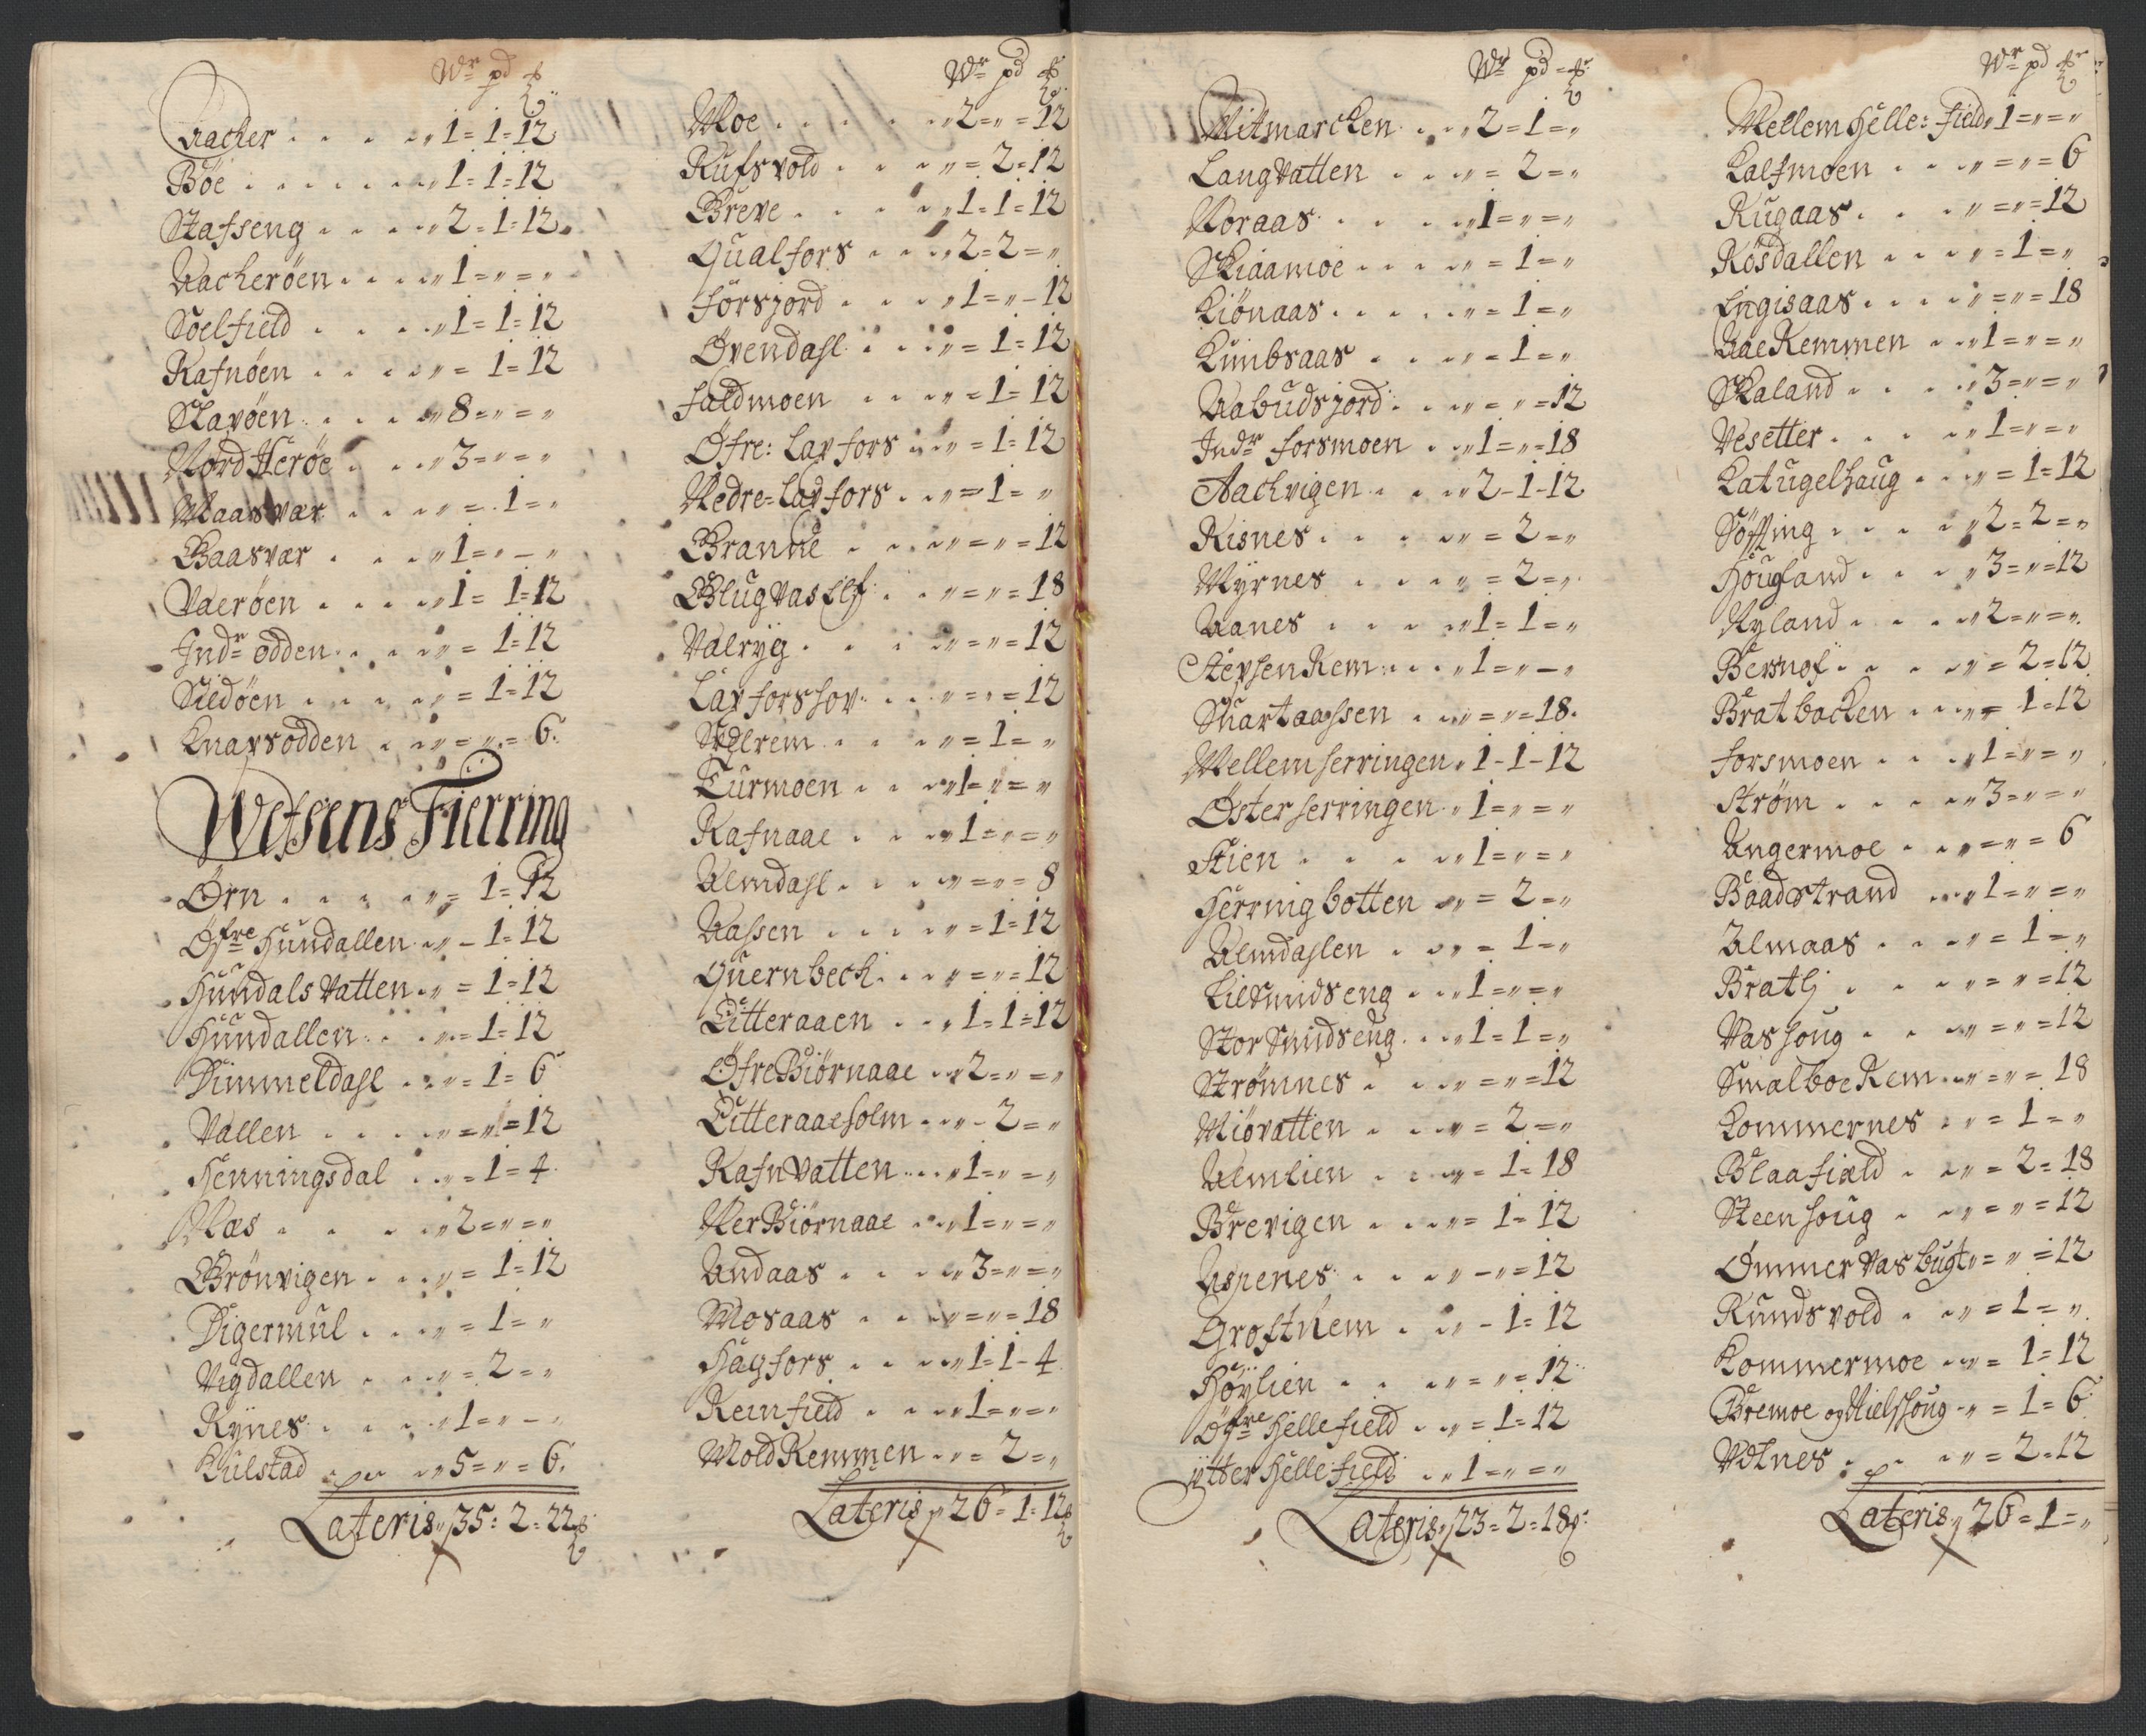 Wr pd
Aacher . . . . „ 1 = 1 = 12
Böe . . . . . „ 1 = 1 = 12
Stafseng . . . . „ 2 = 1 = 12
Aacheröen . . . „ 1 = „ = „
Soelfield . . . . „ 1 = 1 = 12
Rafnöen . . . . „ = 1 = 12
Slavöen . . . . „ 8 = „ = „
Nord Heröe . . . „ 3 = „ = „
Maasvær . . . . „ = 1 = „
Baasvær . . . „ 1 = „ – „
Vaeröen . . . . „ 1 = 1 = 12
Indr odden . . . „ = 1 = 12
Sildöen . . . . „ = 1 = 12
Knavsodden . . „ = „ = 6
Wefsens Fierring
Örn . . . . . „ = 1 = 12
Öfre Hundallen . . „ – 1 = 12
Hundals Vatten . „ = 1 = 12
Hundallen . . . „ = 1 = 12
Dimmeldahl . . . „ = 1 = 6
Vallen . . . . „ = „ = 12
Henningsdal . . „ = 1 = 4
Næs . . . . . „ 2 = „ = „
Brönvigen . . . „ = 1 = 12
Digermul . . . „ = 1 = „
Vigdallen . . . „ = 2 = „
Rÿnes . . . . „ 1 = „ – „
Kulstad . . . „ 5 = „ = 6
Lateris „ 35 = 2 = 22
Wr pd
Moe . . . . . „ 2 = „ = 12
Rufsvold . . . „ = 2 = 12
Greve . . . . „ 1 = 1 = 12
Qualfors . . . „ 2 = 2 = „
Forsjord . . . . „ 1 = „ – 12
Övendahl . . . „ = 1 = 12
Faldmoen . . . „ = 1 = 12
Öfre: Lavfors . . „ = 1 = 12
Nedre = Lavfors . . „ = 1 = „
Brannè . . . „ = „ = 12
Valryg . . . . „ = „ = 12
Lavforshov . . . „ = „ = 12
Turmoen . . . „ 1 = „ = „
Rafnaae . . . „ 1 = „ = „
Almdahl . . . „ = „ = 8
Aassen . . . . „ = 1 = 12
Quernbech . . . „ = „ = 12
Litteraaen . . „ 1 = 1 = 12
Öfre Biörnaae . . „ 2 = „ = „
Litteraaeholm . . „ – 2 = „
Rafn Vatten . . . „ 1 = „ = „
Ner Biörnaae . . „ 1 = „ = „
Andaas . . . . „ 3 = „ = „
Mosaas . . . „ = „ = 18
Hagfors . . . „ 1 = 1 – 4
Reinfield . . . „ 1 = „ = „
Mold Remmen . . „ = 2 = „
Lateris „ 26 = 1 = 12
Wr pd
Mitmarcken . . „ 2 = 1 = „
Langvatten . . . „ = 2 = „
Noraas . . . . „ 1 = „ = „
Skiaamoe . . . . „ = 1 = „
Kiönaas . . . . „ = 1 = „
Kumbsaas . . . „ = 1 = „
Aabudsjord . . . „ = „ = 12
Indr Forsmoen . . „ 1 = „ = 18
Aachvigen . . . „ 2 – 1 – 12
Risnes . . . . „ = 2 = „
Myrnes . . . . „ = 2 = „
Aanes . . . . „ 1 = 1 = „
Stephen Rem . . . „ 1 = „ – „
Suartaassen . . „ = „ = 18
Mellem herringen „ 1 – 1 – 12
Öster herringen . „ 1 = „ = „
Stien . . . . „ 1 = „ = „
Herringbotten . „ = 2 = „
Almdahlen . . „ = 1 = „
Lilsmidseng . . „ 1 = „ = „
Stor Smidseng . . „ 1 = 1 = „
Strömnes . . . „ = „ = 12
Miövatten . . . „ = 2 = „
Almlien . . . „ = 1 = 18
Brevigen . . . „ = 1 = 12
Aspenes . . . „ – „ = 12
Groftrem . . „ – 1 = 12
Höylien . . . „ = „ = 12
Öfre Hellefield . . „ = 1 = 12
ytter Hellefield . . „ 1 = „ = „
Lateris „ 23 = 2 = 18
Wr pd
Mellem Helle: field „ 1 = „ = „
Kalfmoen . . . „ = „ = 6
Rugaas . . . . „ = „ = 12
Rösdallen . . . „ = 1 = „
Engisaas . . . . „ = „ = 18
Aae Remmen . . „ 1 = „ = „
Skaland . . . . „ 3 = „ = „
Vesetter . . . . „ 1 = „ = „
Katugelhaug . . . „ = 1 = 12
Söfting . . . . „ 2 = 2 = „
Hougland . . . . „ 3 = „ = 12
Ryland . . . . „ 2 = „ = „
Bratbacken . . . „ = 1 = 12
Forsmoen . . . „ 1 = „ = „
Ström . . . . „ 3 = „ = „
Angermoe . . . „ = „ = 6
Baadstrand . . „ 1 = „ = „
Almaas . . . „ = 1 = „
Bratli . . . . „ = „ = 12
Vashoug . . . „ = „ = 12
Smalboe Rem . . „ = „ = 18
Kommernes . . „ = 1 = „
Blaafiæld . . „ = 2 = 18
Steenhoug . . „ = „ = 12
Ommervasbugt „ = „ = 12
Rundsvold . . „ = 1 = „
Kommermoe . . „ = 1 = 12
Bremoe og Nielshoug . „ = 1 = 6
Volnes . . . „ = 2 = 12
Lateris „ 26 = 1 = „